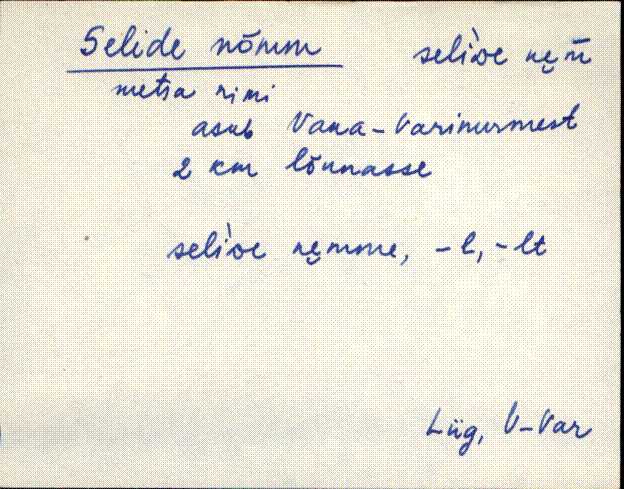 Selide nõmm seliὸe nę̮m̄
metsa nimi
asub Vana-Varinurmest
2 km lõunasse
seliὸe nę̮mme, -l, -lt
Lüg, V-Var